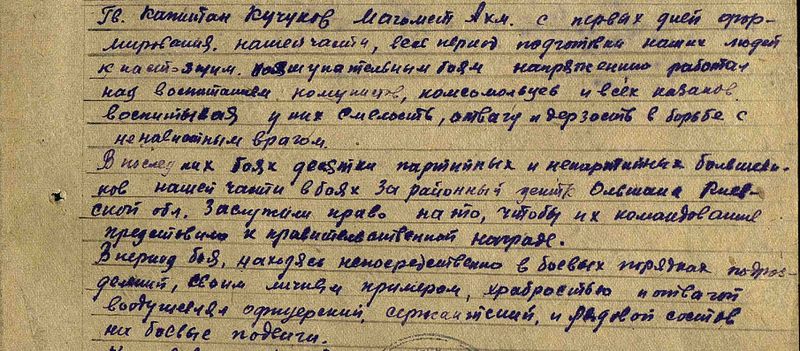 Гв. Капитан Кучуков Магомет Ахм. с первых дней фор-
мирования. нашей части, весь период подготовки наших людей
к настоящим. наступательным боям напряженно работал
над воспитанием комунистов, комсомольцев и всех казаков.
воспитывая у них смелость, отвагу и дерзость в борьбе с
ненавистным врагом.
В последних боях десятки партийных и непартийных большеви-
ков нашей части в боях За районный центр Ольшана Киев-
ской обл. Заслужили право на то, чтобы их командование
представило к правительственной награде.
В период боя, находясь непосредственно в боевых порядках подраз-
делений, своим личным примером, храбростью и отвагой
воодушевлял офицерский, сержантский, и рядовой состав
на боевые подвиги.